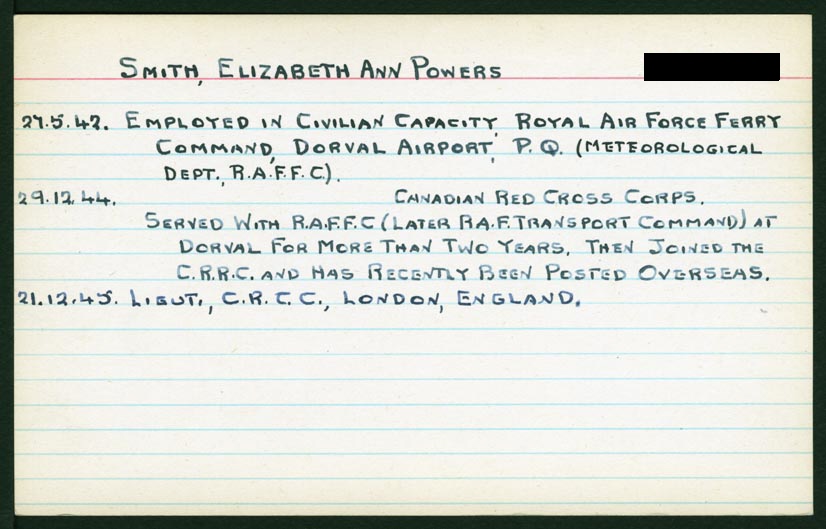 SMITH, ELIZABETH ANN POWERS
27.5.42. EMPLOYED IN CIVILIAN CAPACITY, ROYAL AIR FORCE FERRY
COMMAND, DORVAL AIRPORT, P.Q. (METEOROLOGICAL
DEPT., R.A.F.F.C).
29.12.44. CANADIAN RED CROSS CORPS.
SERVED WITH R.A.F.F.C (LATER R.A.F. TRANSPORT COMMAND) AT
DORVAL FOR MORE THAN TWO YEARS, THEN JOINED THE
C.R.R.C. AND HAS RECENTLY BEEN POSTED OVERSEAS.
21.12.45. LIEUT., C.R.C.C., LONDON, ENGLAND.